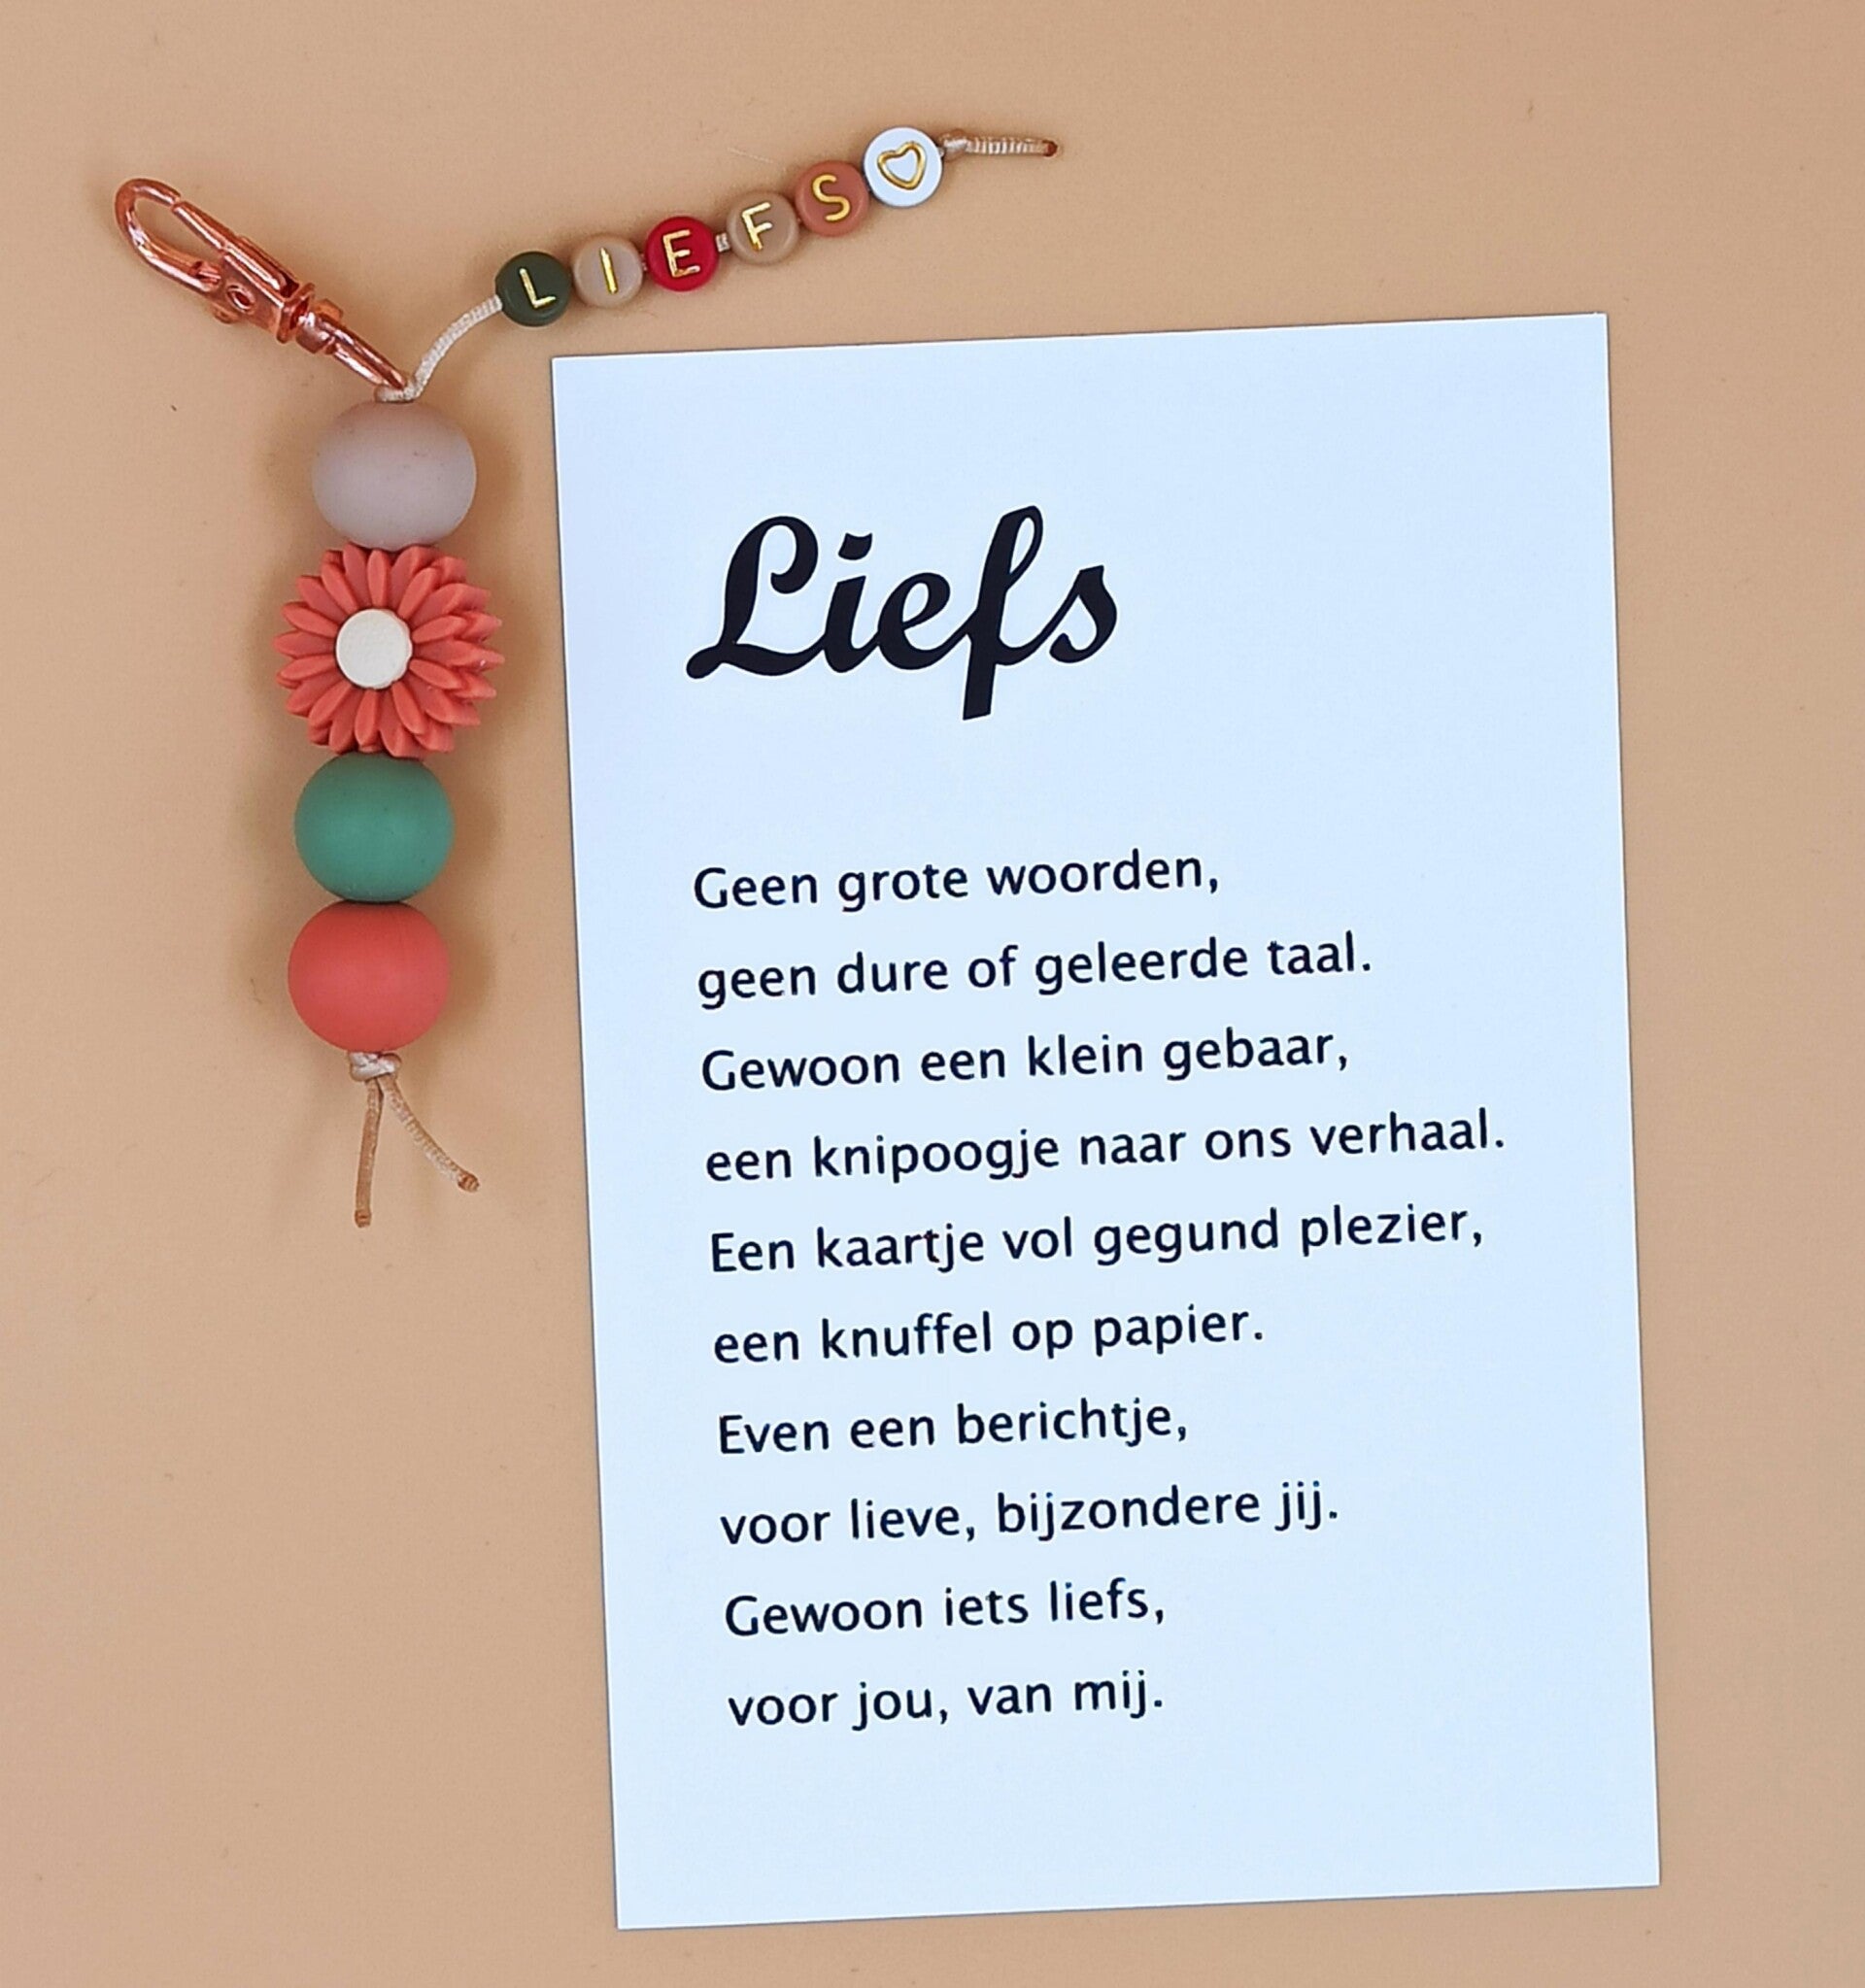 LIEFS
Liefs
Geen grote woorden,
geen dure of geleerde taal.
Gewoon een klein gebaar,
een knipoogje naar ons verhaal.
Een kaartje vol gegund plezier,
een knuffel op papier.
Even een berichtje,
voor lieve, bijzondere jij.
Gewoon iets liefs,
voor jou, van mij.